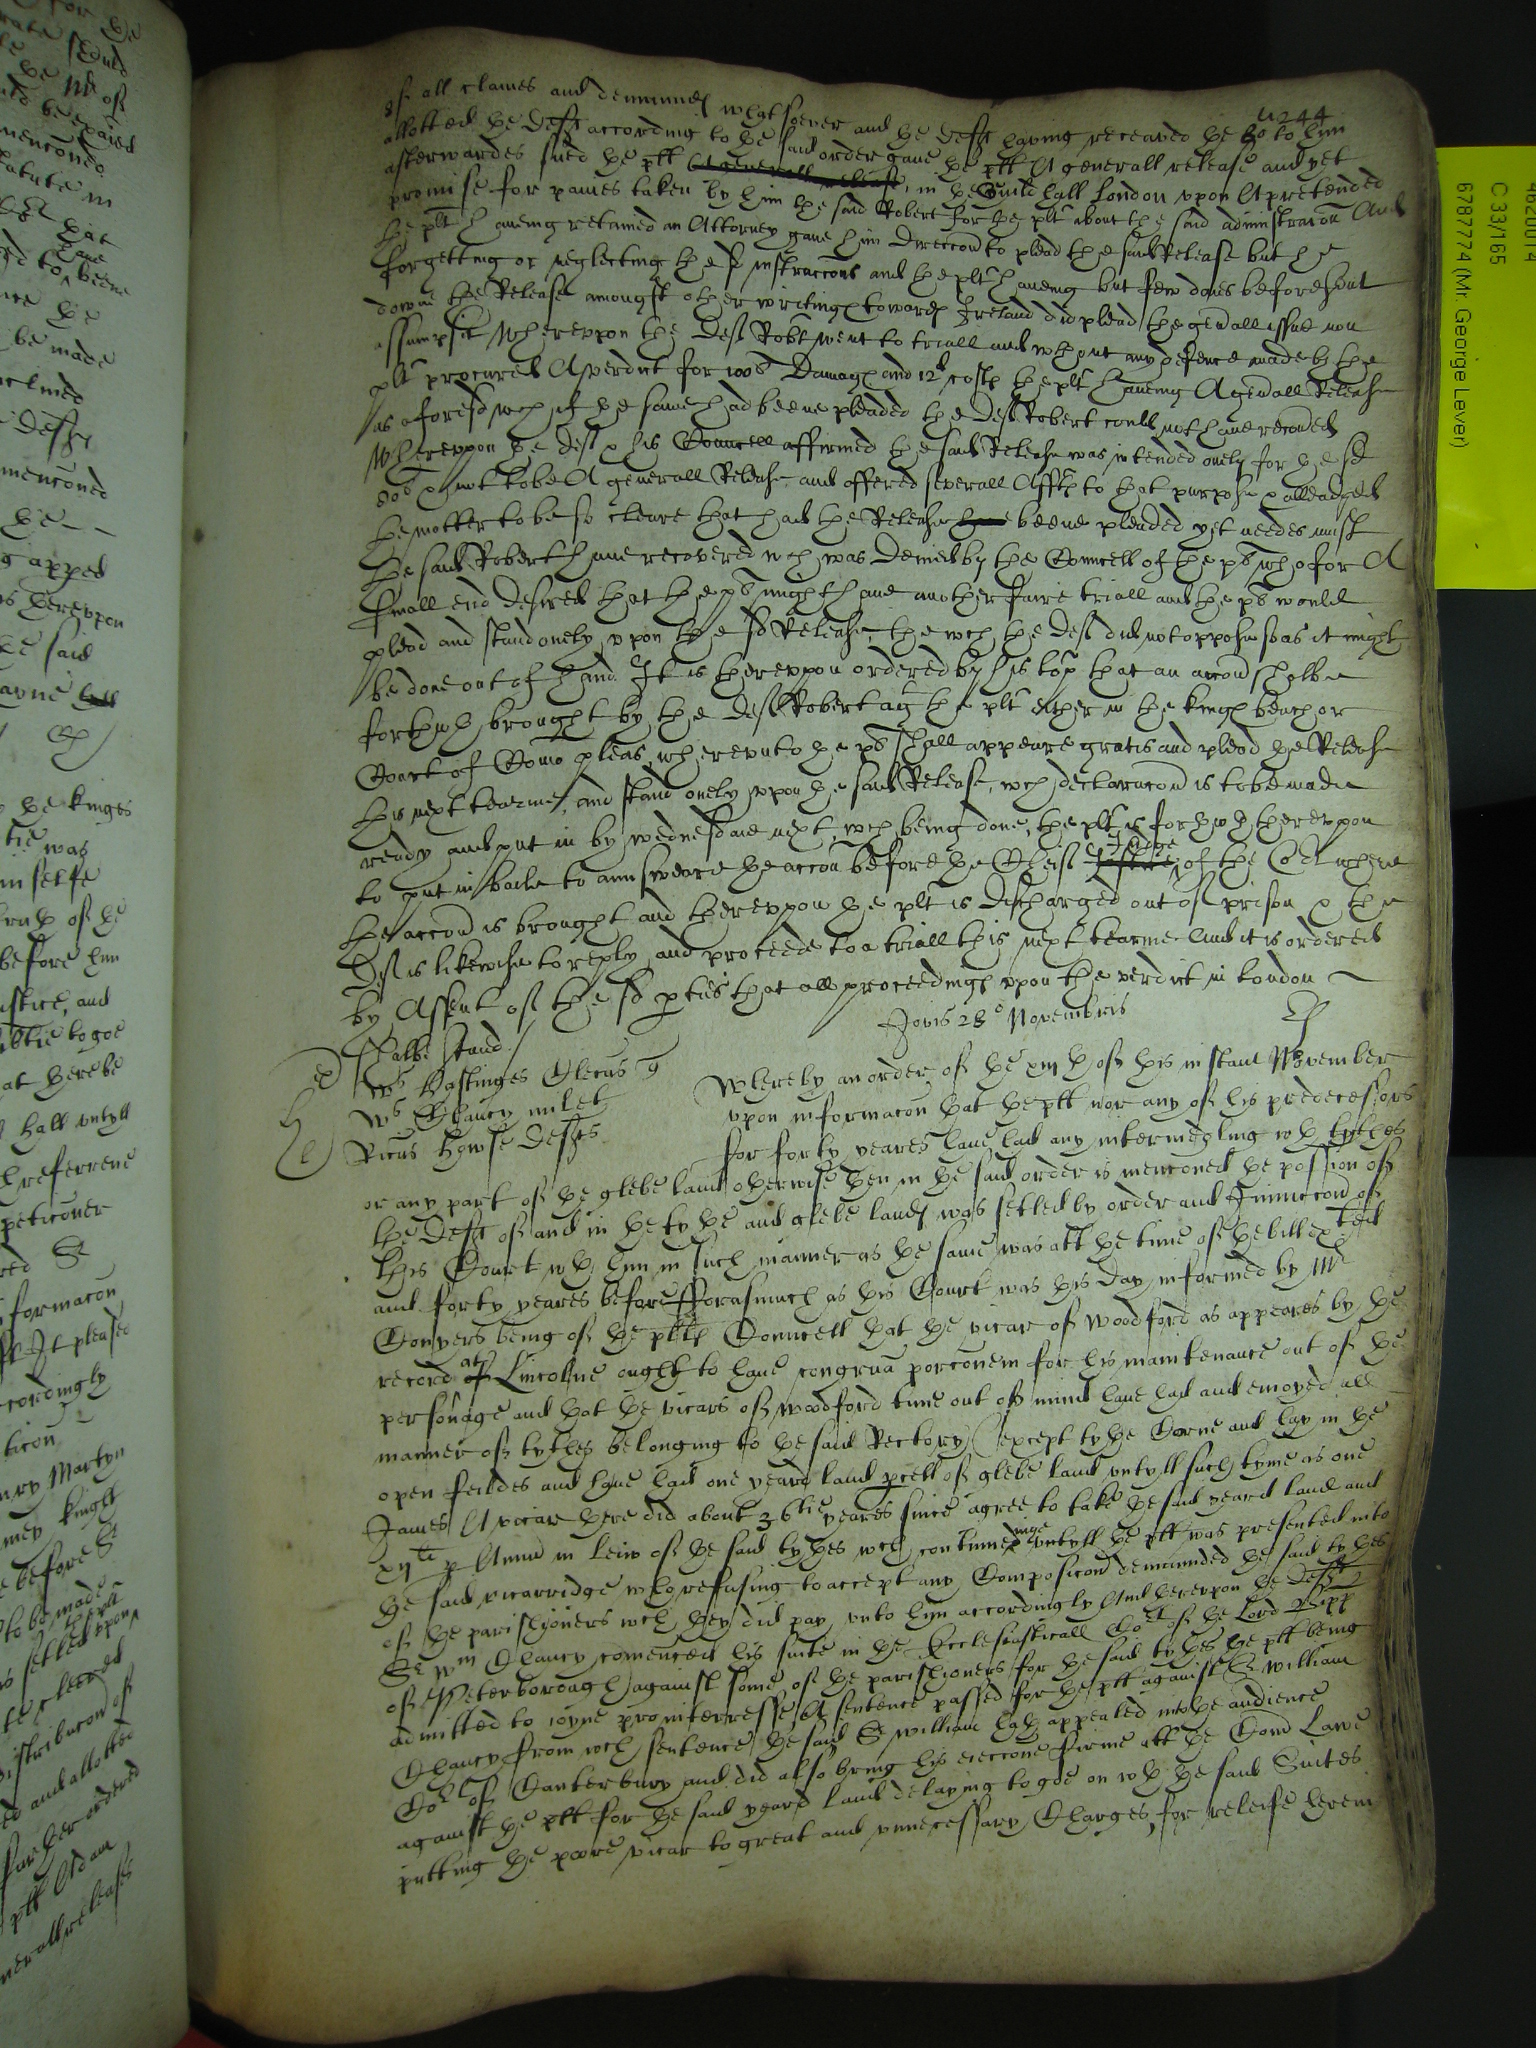 244
of all claimes and demaundℯ whatsoever and the deft having receaved the 80 to him
allotted the deft according to the said order gave the plt A generall release and yet
afterwardes sued the plt A generall release, in the Guildhall London upon A pretended
promise for paines taken by him the said Robert for the plt about the said administracon And
the plt haveing retained an Attorney gave him direccon to plead the said Release but he
forgetting or neglecting these instruccons and the plt haveing but few daies before sent
downe the Release amongst other writingℯ towardℯ Ireland did plead the genall issue non
assumpsit Wherevpon the deft Robt went to triall and wthout any defence made by the
plt procured A verdict for 100s Damagℯ and 12d costℯ the plt haveing A genall Release
as aforesd wch if the same had beene pleaded the deft Robert could not have recoved
Wherevpon the deft & his Councell affirmed the said Release was intended onely for the sd
80s & not to be A generall Release and offered severall Affts to that purpose & alleadged
the matter to be so cleare that had the Release have beene pleaded yet needes must
the said Robert have recovered wch was denied by the Councell of the pt who for A
small end desired that the pt might have another faire triall and the pt would
plead and stand onely vpon the sd Release, the wch the deft did not oppose so as it might
be done out of hand. It is therevpon ordered by his Lop that an accon shalbe
forthwth brought by the deft Robert agt the plt either in the kingℯ bench or
Court of Comon pleas, wherevnto the pt shall appeare gratis and plead the Release
this next tearme, and stand onely vpon the said Release, wch declaracon is to be made
ready and put in by wednesdaie next, wch being done, the plt is forthwth therevpon
to put in baile to aunsweare the accon before the Cheif Justice Judge of the Cort where
the accon is brought and therevpon the plt is discharged out of prison & the
deft is likewise to reply and proceede to a triall this next tearme And it is ordered
by Assent of the sd pties that all proceedingℯ vpon the verdict in London
shalbe staid /
Jovis 28o Novembris
Ws Hastinges Clecus q
Ws Chancy milet
Ricus Howse defts
Whereby an order of the xiijth of this instant November
vpon informacon that the plt nor any of his predecessors
for forty yeares have had any intermedling wth tythes
or any part of the glebe land otherwise then in the said order is menconed the possion of
the deft of and in the tythe and glebe landℯ was setled by order and Iniunccon of
this Court wth him in such manner as the same was att the time of the bill exted
and forty yeares before fforasmuch as this Court was this day informed by Mr
Conyers being of the pltℯ Councell that the vicar of Woodford as appeares by the
record of att Lincolne ought to have congrua porconem for his maintenance out of the
personage and that the vicars of woodford time out of mind have had and enioyed all
manner of tythes belonging to the said Rectory (except tythe Corne and hay in the
open feildes and have had one yeard land pcell of glebe land untyll such tyme as one
James A vicar there did about 36tie yeares since agree to take the said yeard land and
xijli p Annu in leiw of the said tythes wch continued untyll the plt was presented into
the said vicarridge who refusing to accept any Composicon demaunded the said tythes
of the parishioners wch they did pay vnto him accordingly And therevpon the deft
Sr wm Chancy comenced his suite in the Ecclesiasticall Cort of the Lord Bpp
of Peterborough against some of the parishioners for the said tythes the plt being
admitted to ioyne pro interresse A sentence passed for the plt against Sr William
Chancy from wch sentence the said Sr William hath appealed into the audience
Cort of Canterbury and did also bring his eieccone firme att the Comon Lawe
against the plt for the said yeard land delaying to goe on wth the said Suites
putting the poore vicar to great and vnnecessary Charges, for releife herein
4620014
C 33/165
6787774 (Mr. George Lever)